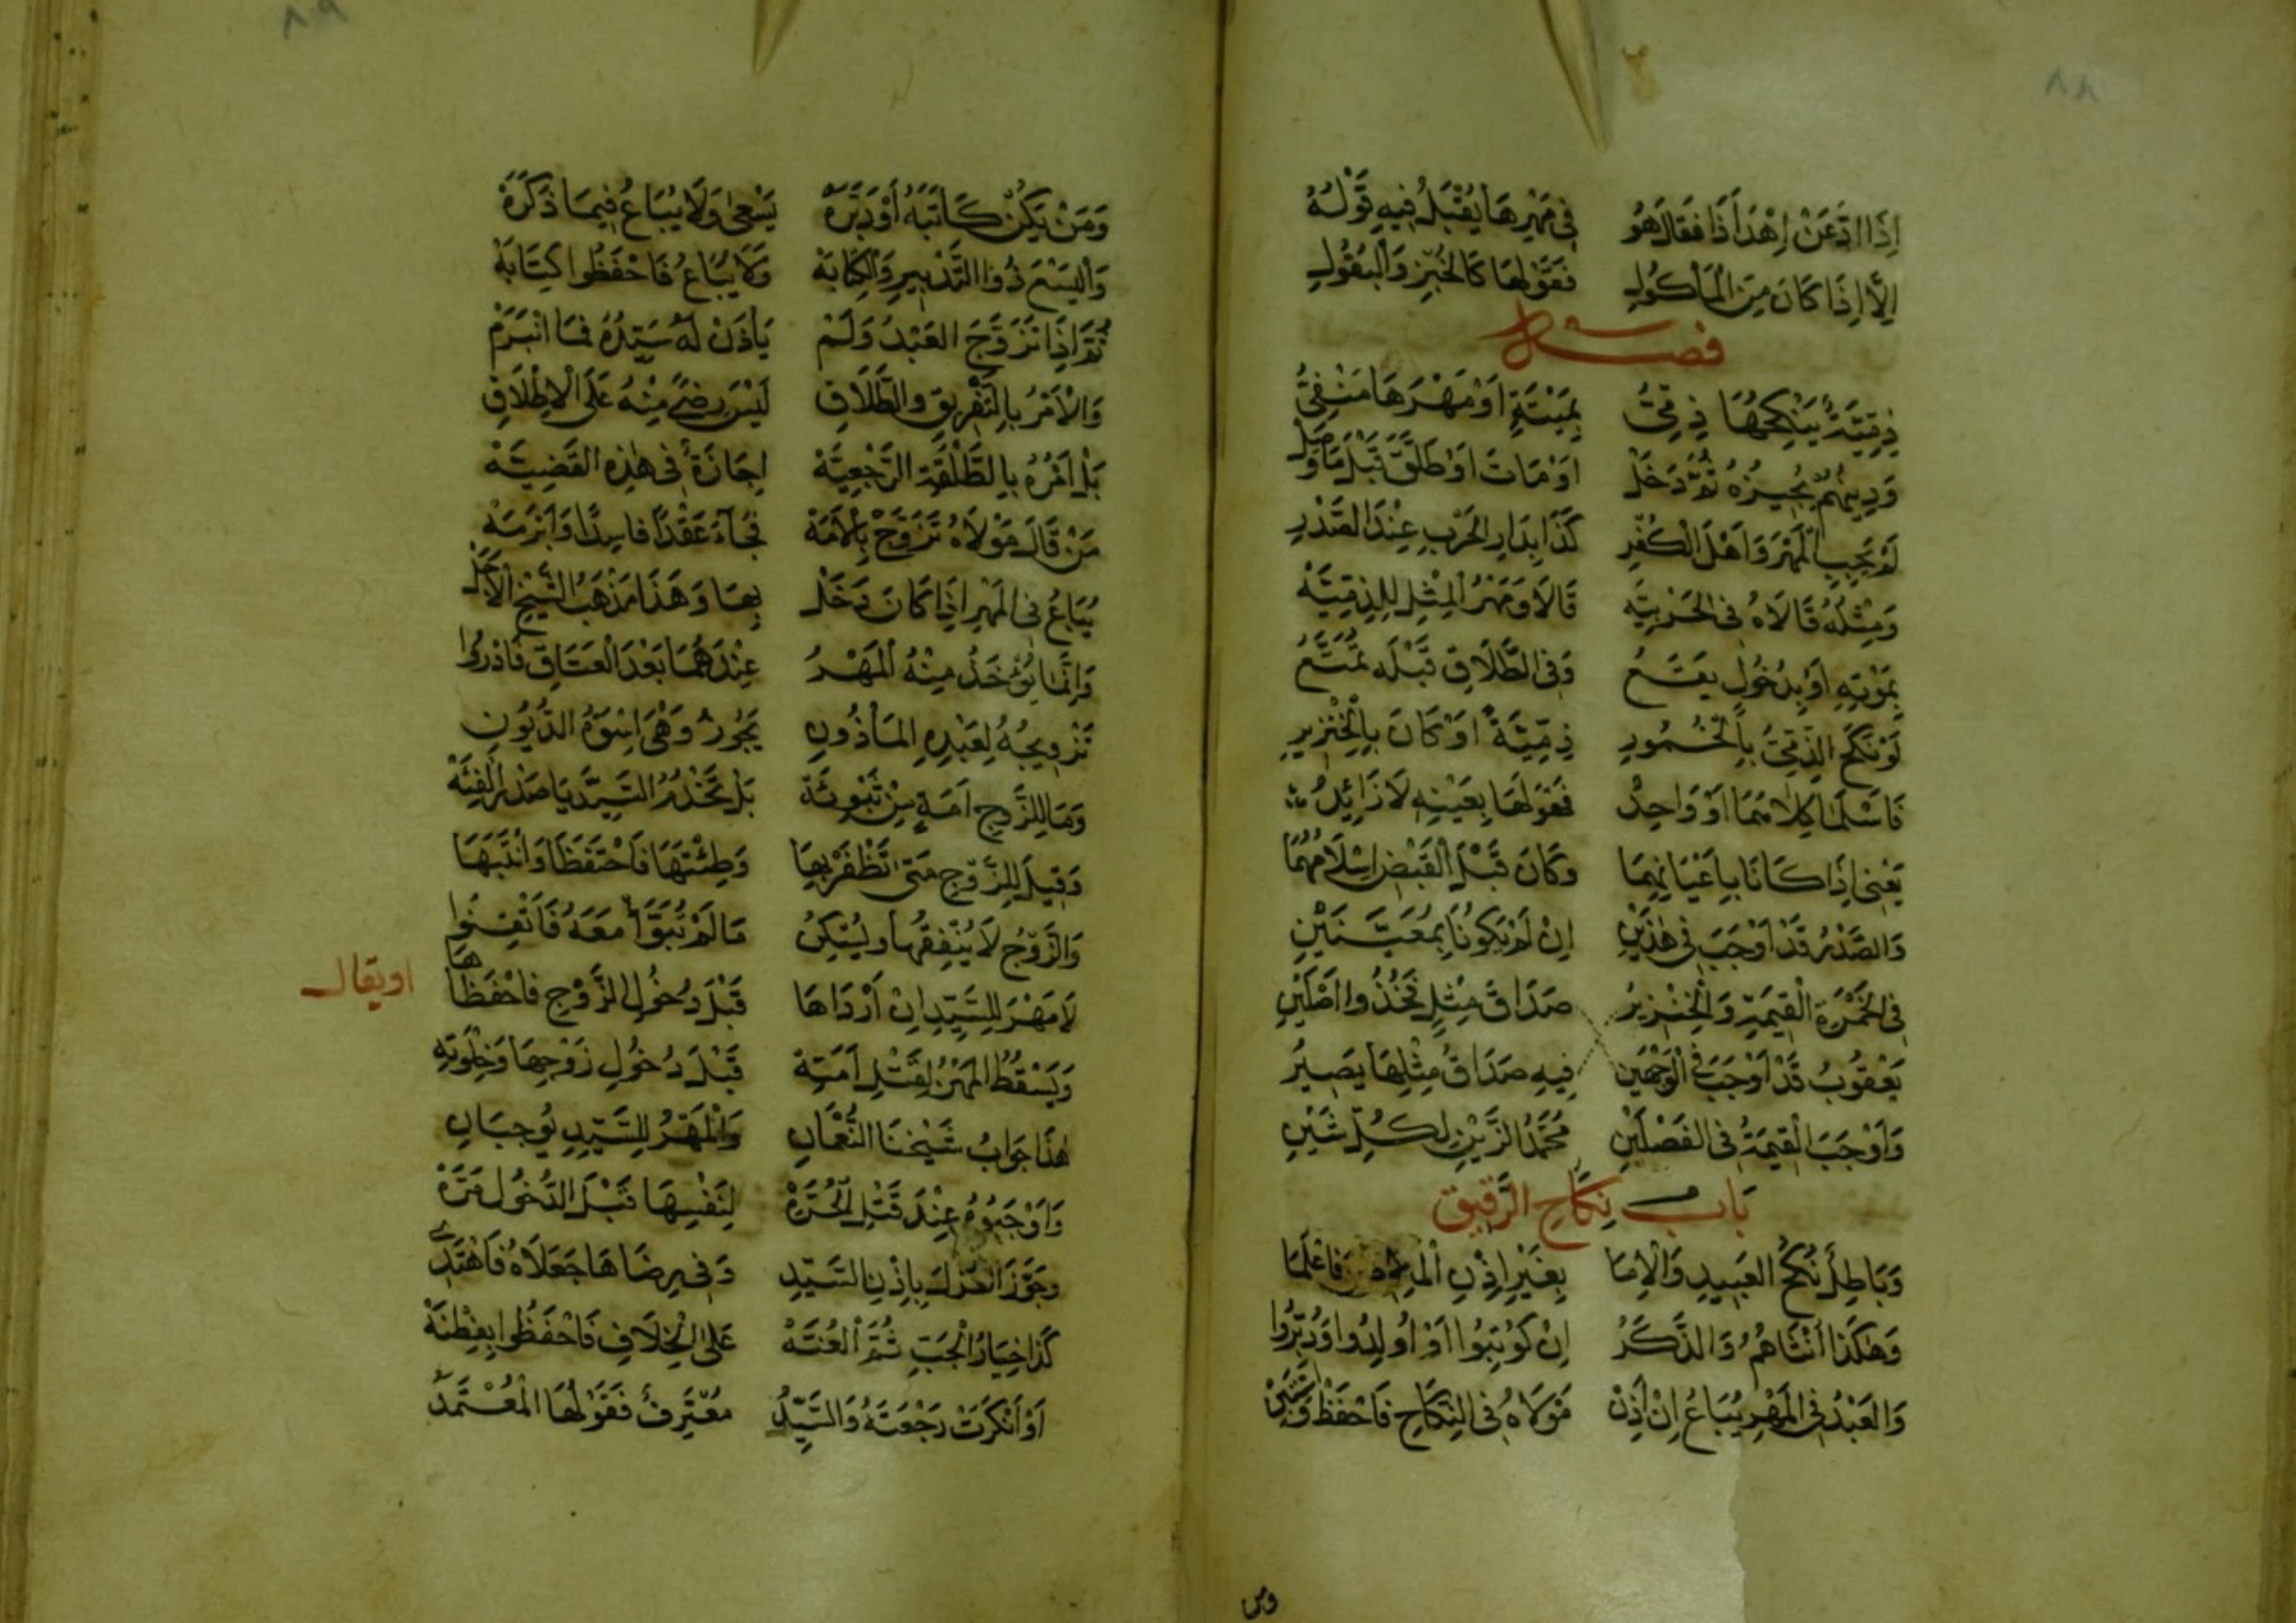 ٨٨
إِذَا ادَّعَنْ إِهْدَاءَ ذَا فَقَالَ هُو فِي مَهْرِهَا يُقْبَلُ فِيهِ قَوْلُهُ
إِلَّا إِذَا كَانَ مِنَ الْمَأْكُولِ فَقَوْلُهَا كَالْخُبْزِ وَالْبُقُولِ
فصل
ذِمِّيَّةٌ يَنْكِحُهَا ذِمِّيُّ بِمَيْتَةٍ اَوْ مَهْرُهَا مَنْفِيُّ
وَدِينُهُمْ يُجِيزُهُ ثُمَّ دَخَلْ اَوْ مَاتَ اَوْ طَلَّقَ قَبْلَ مَا وَصَلْ
لَمْ يَجِبِ الْمَهْرُ وَاَهْلُ الْكُفْرِ كَذَا بِدَارِ الْحَرْبِ عِنْدَ الصَّدْرِ
وَمِثْلُهُ قَالَاهُ فِي الْحَرْبِيَّه قَالَا وَمَهْرُ الْمِثْلِ لِلذِّمِّيَّه
بِمَوْتِهِ اَوْ بِدُخُولٍ يَقَعُ وَفِي الطَّلَاقِ قَبْلَهُ تُمَتَّعُ
لَوْ نَكَحَ الذِّمِّيُّ بِالْخُمُورِ ذِمِّيَّةً اَوْ كَانَ بِالْخِنْزِيرِ
فَاَسْلَمَا كِلَاهُمَا اَوْ وَاحِدُ فَقَوْلُهَا بِعَيْنِهِ لَا زَائِدُ
يَعْنِي إِذَا كَانَا بِاَعْيَانِهِمَا وَكَانَ قَبْلَ الْقَبْضِ اِسْلَامُهُمَا
وَالصَّدْرُ قَدْ اَوْجَبَ فِي هٰذَيْنِ اِنْ لَمْ يَكُونَا بِمُعَيَّنَيْنِ
فِي الْخَمْرَةِ الْقِيمَةَ وَالْخِنْزِيرُ صَدَاقَ مِثْلٍ فَخُذُوا اَصْلَيْنِ
يَعْقُوبُ قَدْ اَوْجَبَ فِي الْوَجْهَيْنِ فِيهِ صَدَاقُ مِثْلِهَا يَصِيرُ
وَاَوْجَبَ الْقِيمَةَ فِي الْفَصْلَيْنِ مُحَمَّدُ الزَّيْنِ لِكُلِّ شَيْنِ
بَابُ نِكَاحِ الرَّقِيقِ
وَبَاطِلٌ نُكْحُ الْعَبِيدِ وَالْاِمَا بِغَيْرِ اِذْنِ فَاعْلَمَا
وَهٰكَذَا اُنْثَاهُمُ وَالذَّكَرُ اِنْ كُوتِبُوا اَوْ اُولِدُوا وَدُبِّرُوا
وَالْعَبْدُ فِي الْمَهْرِ يُبَاعُ اِنْ اَذِنْ مَوْلَاهُ فِي النِّكَاحِ فَاحْفَظْ
ومن
٨٩
وَمَنْ يَكُنْ كَاتَبَهُ اَوْ دَبَّرَهْ يَسْعَى وَلَا يُبَاعُ فِيمَا ذَكَرَهْ
ذُو التَّدْبِيرِ وَالْكِتَابَهْ وَلَا يُبَاعُ فَاحْفَظُوا كِتَابَهْ
ثُمَّ اِذَا تَزَوَّجَ الْعَبْدُ وَلَمْ يَأْذَنْ لَهُ سَيِّدُهُ فَمَا انْبَرَمْ
وَالْاَمْرُ بِالتَّفْرِيقِ وَالطَّلَاقِ لَيْسَ رِضًى مِنْهُ عَلَى الْاِطْلَاقِ
بَلْ اَمْرُهُ بِالطَّلْقَةِ الرَّجْعِيَّهْ اِجَازَةٌ فِي هٰذِهِ الْقَضِيَّهْ
مَنْ قَالَ مَوْلَاهُ تَزَوَّجْ بِالْاَمَهْ فَجَاءَ عَقْدًا فَاسِدًا وَاَبْرَمَهْ
يُبَاعُ فِي الْمَهْرِ اِذَا كَانَ دَخَلْ بِهَا وَهَذَا مَذْهَبُ الشَّيْخِ الْاَجَلْ
وَاِنَّمَا يُؤْخَذُ مِنْهُ الْمَهْرُ عِنْدَهُمَا بَعْدَ الْعَتَاقِ فَادْرُوا
تَزْوِيجُهُ لِعَبْدِهِ الْمَأْذُونِ يَجُوزُ وَهْيَ اُسْوَةُ الدُّيُونِ
وَمَا لِلزَّوْجِ اَمَةٍ مِنْ تَبْوِئَهْ بَلْ تَخْدُمُ السَّيِّدَ يَا صَدْرَ الْفِئَهْ
وَقِيلَ لِلزَّوْجِ مَتَى تَظْفَرْ بِهَا وَطِئْتَهَا فَاحْتَفَظَا وَانْتَبِهَا
وَالزَّوْجُ لَا يُنْفِقُهَا وَيُسْكِنُ مَا لَمْ تُبَوَّأْ مَعَهُ فَاَتْقِنُوا
لَا مَهْرَ لِلسَّيِّدِ اِنْ اَرْدَاهَا قَبْلَ دُخُولِ الزَّوْجِ فَاحْفَظَاهَا
او يقال
وَيَسْقُطُ الْمَهْرُ لِقَتْلِ اَمَتِهْ قَبْلَ دُخُولِ زَوْجِهَا وَخَلْوَتِهْ
هٰذَا جَوَابُ شَيْخِنَا النُّعْمَانِ وَالْمَهْرُ لِلسَّيِّدِ يُوجِبَانِ
وَاَوْجَبُوهُ عِنْدَ قَتْلِ الْحُرَّهْ لِنَفْسِهَا قَبْلَ الدُّخُولِ مَرَّهْ
وَجَوَّزَ الْعَزْلَ بِاِذْنِ السَّيِّدِ وَفِي رِضَاهَا جَعَلَاهُ فَاهْتَدِي
كَذَا خِيَارُ الْجَبِّ ثُمَّ الْعُنَّهْ عَلَى الْخِلَافِ فَاحْفَظُوا بِفِطْنَهْ
اَوْ اَنْكَرَتْ رَجْعَتَهُ وَالسَّيِّدُ مُعْتَرِفٌ فَقَوْلُهَا الْمُعْتَمَدُ